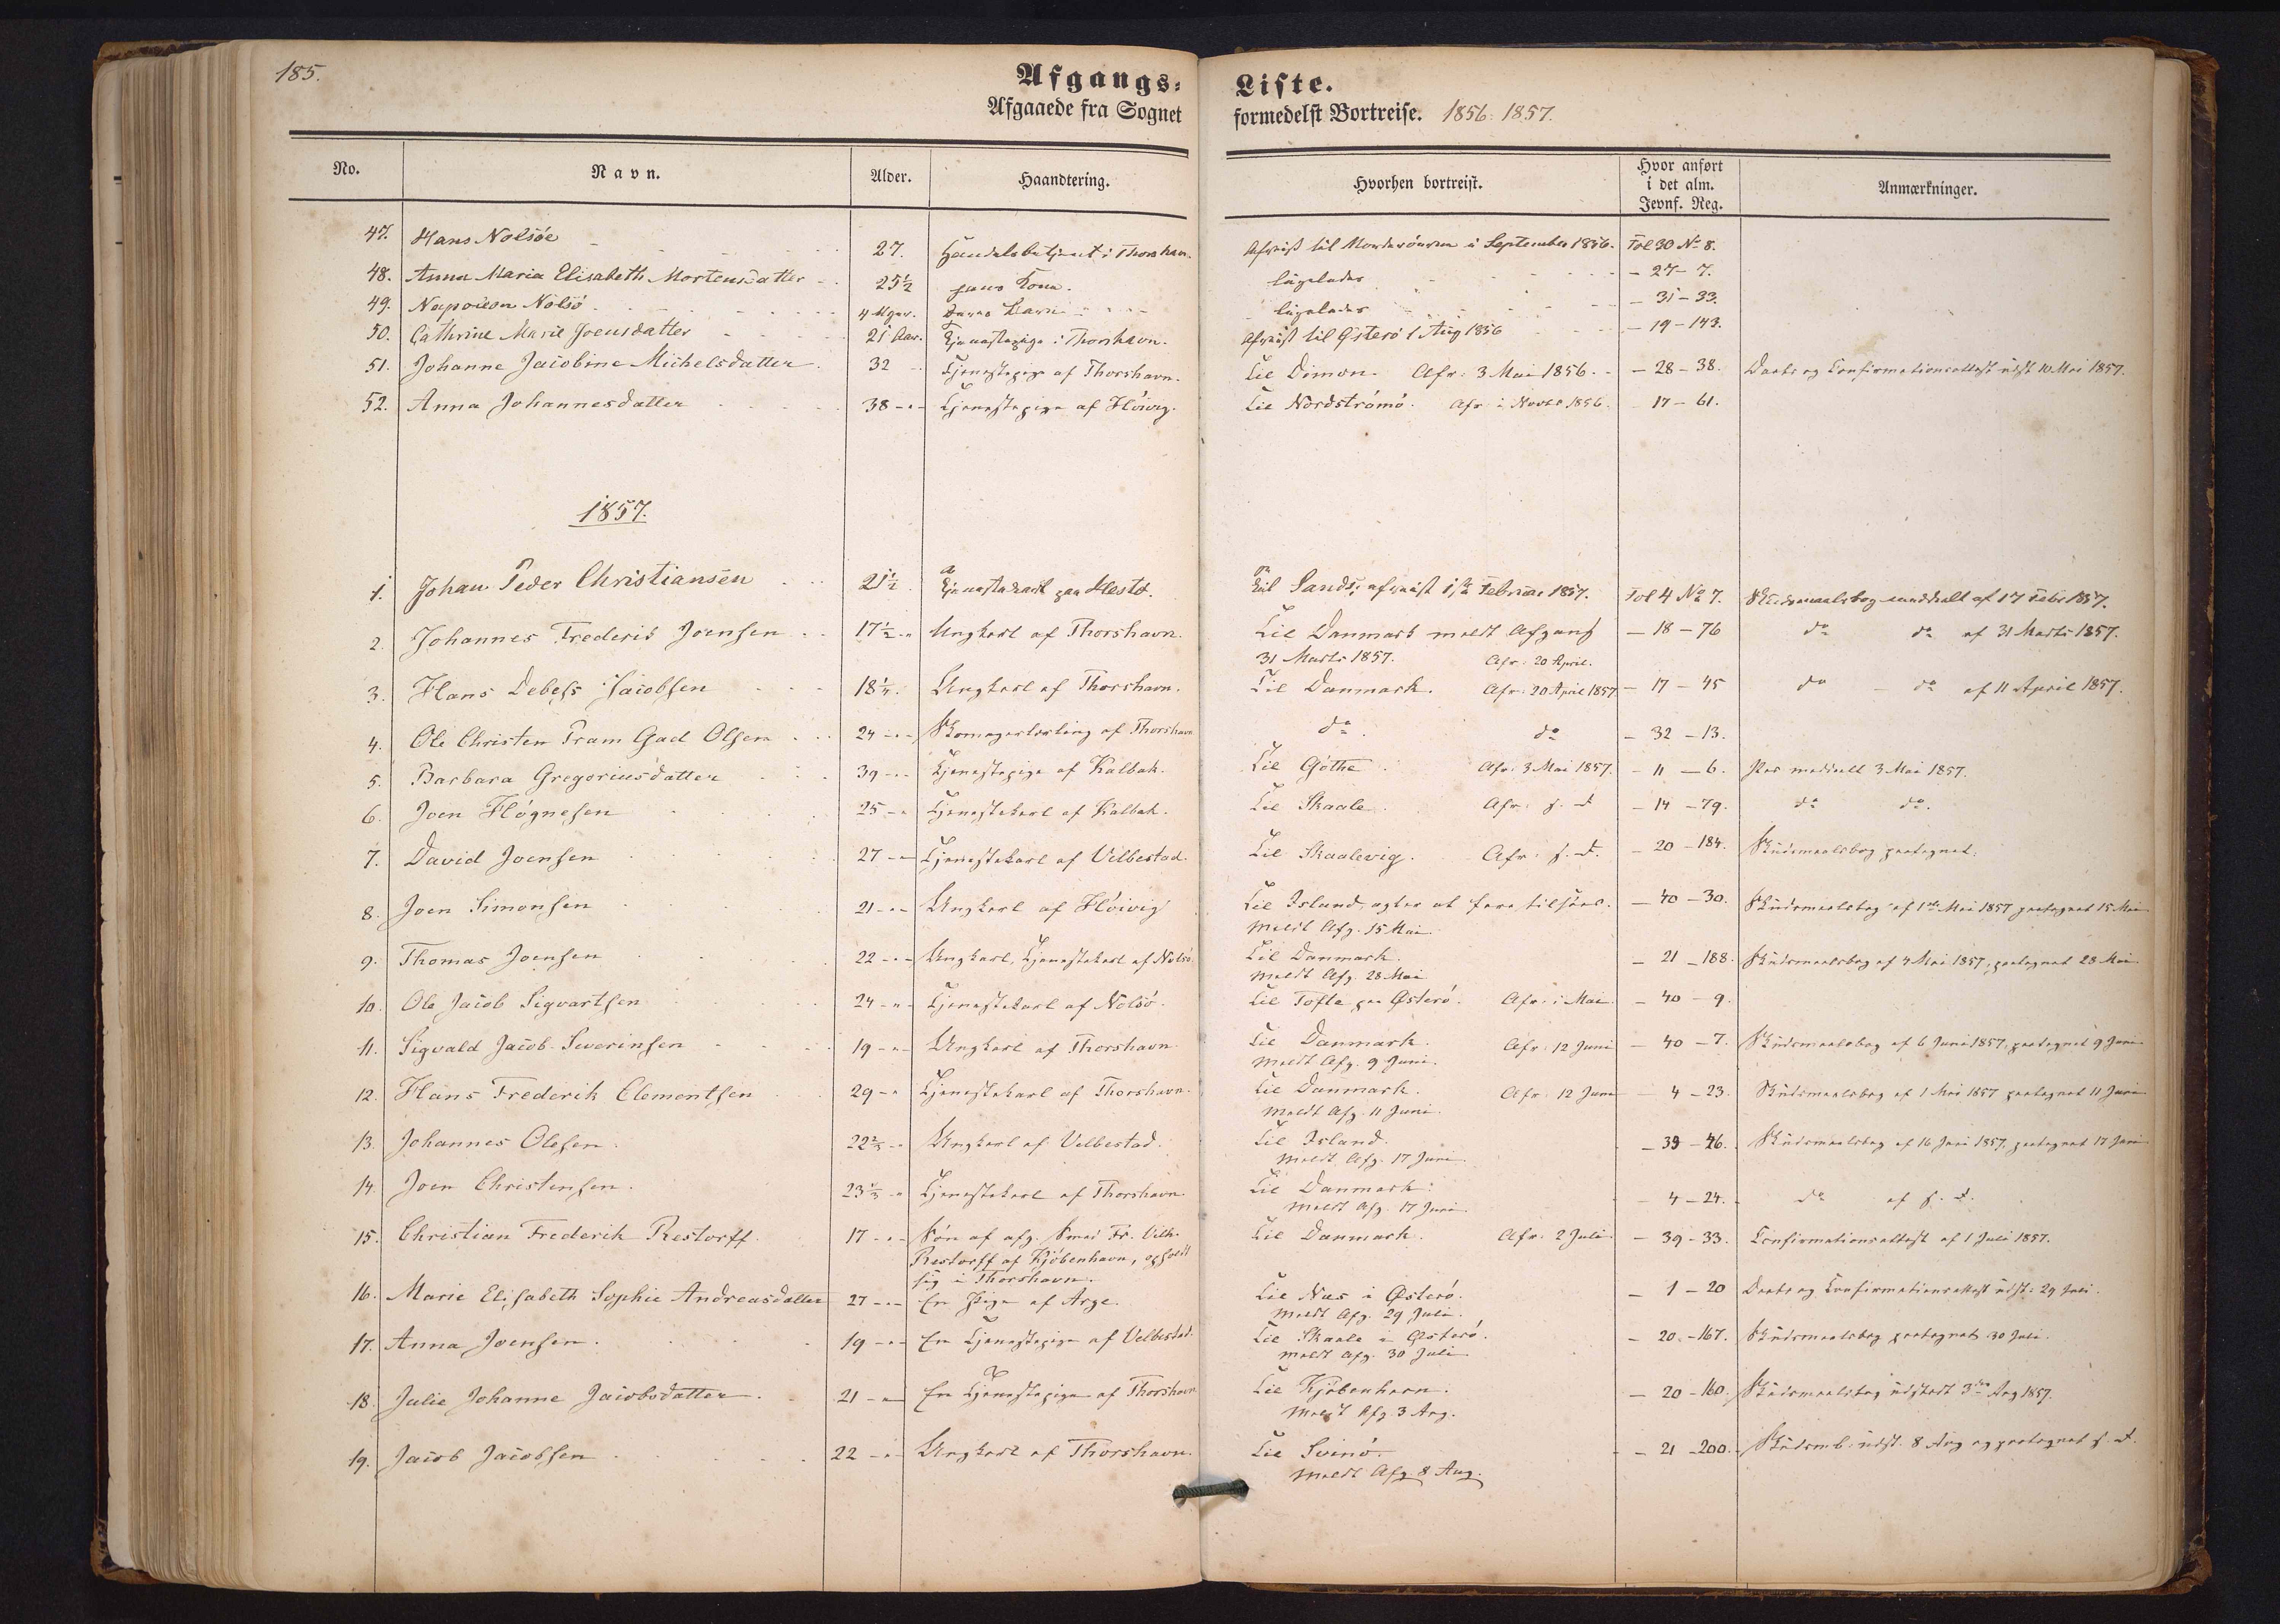 185.
Afgangs-Liste.
Afgaaede fra Sognet formedelst Bortreise. 1856. 1857.
No. Navn. Alder. Haandtering. Hvorhen bortreist. Hvor anført i det alm. Jevnf. Reg. Anmærkninger.
47. Hans Nolsöe 27. Handelsbetjent i Thorshavn. Afreist til Norderöerne i September 1856. Fol 30 No 8.
48. Anna Maria Elisabeth Mortensdatter 25½ hans Kone. ligeledes - 27 - 7.
49. Napoleon Nolsö 4 Uger. Deres Barn ligeledes - 31 - 33.
50. Cathrine Marie Joensdatter 21 Aar. Tjenestepige i Thorshavn. Afreist til Österö 1 Aug 1856 - 19 - 143.
51. Johanne Jacobine Michelsdatter 32 Tjenestepige af Thorshavn. Til Dimon. Afr. 3 Mai 1856. - 28 - 38. Daabs og Confirmationsattest udst 10 Mai 1857.
52. Anna Johannesdatter 38 - " - Tjenestepige af Höivig. Til Nordströmö. Afr. i Novbr 1856. 17 - 61.
1857.
1. Johan Peder Christiansen 21½ Tjenestekarl paa Hestö. Til Sandö; afreist Februar 1857. Fol 4 No 7. Skudsmaalsbog meddelt af 17 Febr 1857.
2. Johannes Frederik Joensen 17½ " Ungkarl af Thorshavn. Til Danmark meldt Afgang - 18 - 76 do do af 31 Marts 1857.
31 Marts 1857. Afr. 20 April.
3. Hans Debess Jacobsen 18¼ Ungkarl af Thorshavn. Til Danmark. Afr. 20 April 1857 - 17 - 45 do - do af 11 April 1857.
4. Ole Christen Pram Gad Olsen 24 - " - Skomagerlærling af Thorshavn do do - 32 - 13.
5. Barbara Gregoriusdatter 39 - " - Tjenestepige af Kalbak. Til Göthe. Afr. 3 Mai 1857. - 11 - 6. Pas meddelt 3 Mai 1857.
6. Joen Högnesen 25 - " Tjenestekarl af Kalbak. Til Skaale. Afr. s. D. - 14 - 79. do do.
7. David Joensen 27 - " - Tjenestekarl af Velbestad. Til Skaalevig. Afr. s. D. - 20 - 184. Skudsmaalsbog paategnet.
8. Joen Simonsen 21 - " - Ungkarl af Höivig Til Island, agter at fare tilsöes. - 40 - 30. Skudsmaalsbog af 1ste Mai 1857 paategnet 15 Mai
Meldt Afg. 15 Mai.
9. Thomas Joensen 22 - " - Ungkarl, Tjenestekarl af Nolsö. Til Danmark. - 21 - 188. Skudsmaalsbog af 4 Mai 1857, paategnet 28 Mai
Meldt Afg. 28 Mai
10. Ole Jacob Sigvartsen 24 - " - Tjenestekarl af Nolsö. Til Tofte paa Österö. Afr. i Mai. - 40 - 9.
11. Sigvald Jacob Severinsen 19 - " - Ungkarl af Thorshavn Til Danmark. Afr. 12 Juni - 40 - 7. Skudsmaalsbog af 6 Juni 1857, paategnet 9 Juni
Meldt Afg. 9 Juni.
12. Hans Frederik Clementsen 29 - " Tjenestekarl af Thorshavn. Til Danmark. Afr. 12 Juni - 4 - 23. Skudsmaalsbog af 1 Mai 1857 paategnet 11 Juni
Meldt Afg. 11 Juni.
13. Johannes Olesen. 22⅔ - " Ungkarl af Velbestad. Til Island. - 39 - 46. Skudsmaalsbog af 16 Juni 1857, paategnet 17 Juni
Meldt Afg. 17 Juni
14. Joen Christensen. 23⅓ - " Tjenestekarl af Thorshavn. Til Danmark. - 4 - 24. do af s. D.
Meldt Afg. 17 Juni
15. Christian Frederik Restorff 17 - " - Sön af afg. Smed Fr. Vilh. Til Danmark. Afr. 2 Juli. - 39 - 33. Confirmationsattest af 1 Juli 1857.
Restorff af Kjöbenhavn, opholdt
sig i Thorshavn.
16. Marie Elisabeth Sophie Andreasdatter 27 - " - En Pige af Arge. Til Næs i Österö. - 1 - 20 Daabs og Confirmationsattest udst. 29 Juli.
Meldt Afg. 29 Juli.
17. Anna Joensen. 19 - " - En Tjenestepige af Velbestad. Til Skaale i Österö. - 20 - 167. Skudsmaalsbog paategnet 30 Juli.
Meldt Afg. 30 Juli
18. Julie Johanne Jacobsdatter. 21 - " - En Tjenestepige af Thorshavn Til Kjöbenhavn. - 20 - 160. Skudsmaalsbog udstedt 3die Aug 1857.
Meldt Afg. 3 Aug.
19. Jacob Jacobsen 22 - " - Ungkarl af Thorshavn. Til Svinö. - 21 - 200. Skudsmb. udst. 8 Aug og paategnet s. D.
Meldt Afg 8 Aug.